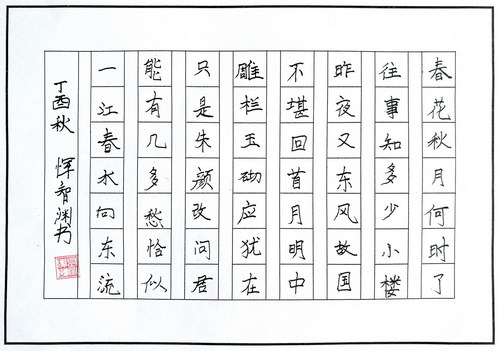 春花秋月何时了
往事知多少小楼
昨夜又东风故国
不堪回首月明中
雕栏玉砌应犹在
只是朱颜改问君
能有几多愁恰似
一江春水向东流
丁酉秋 恽智渊书